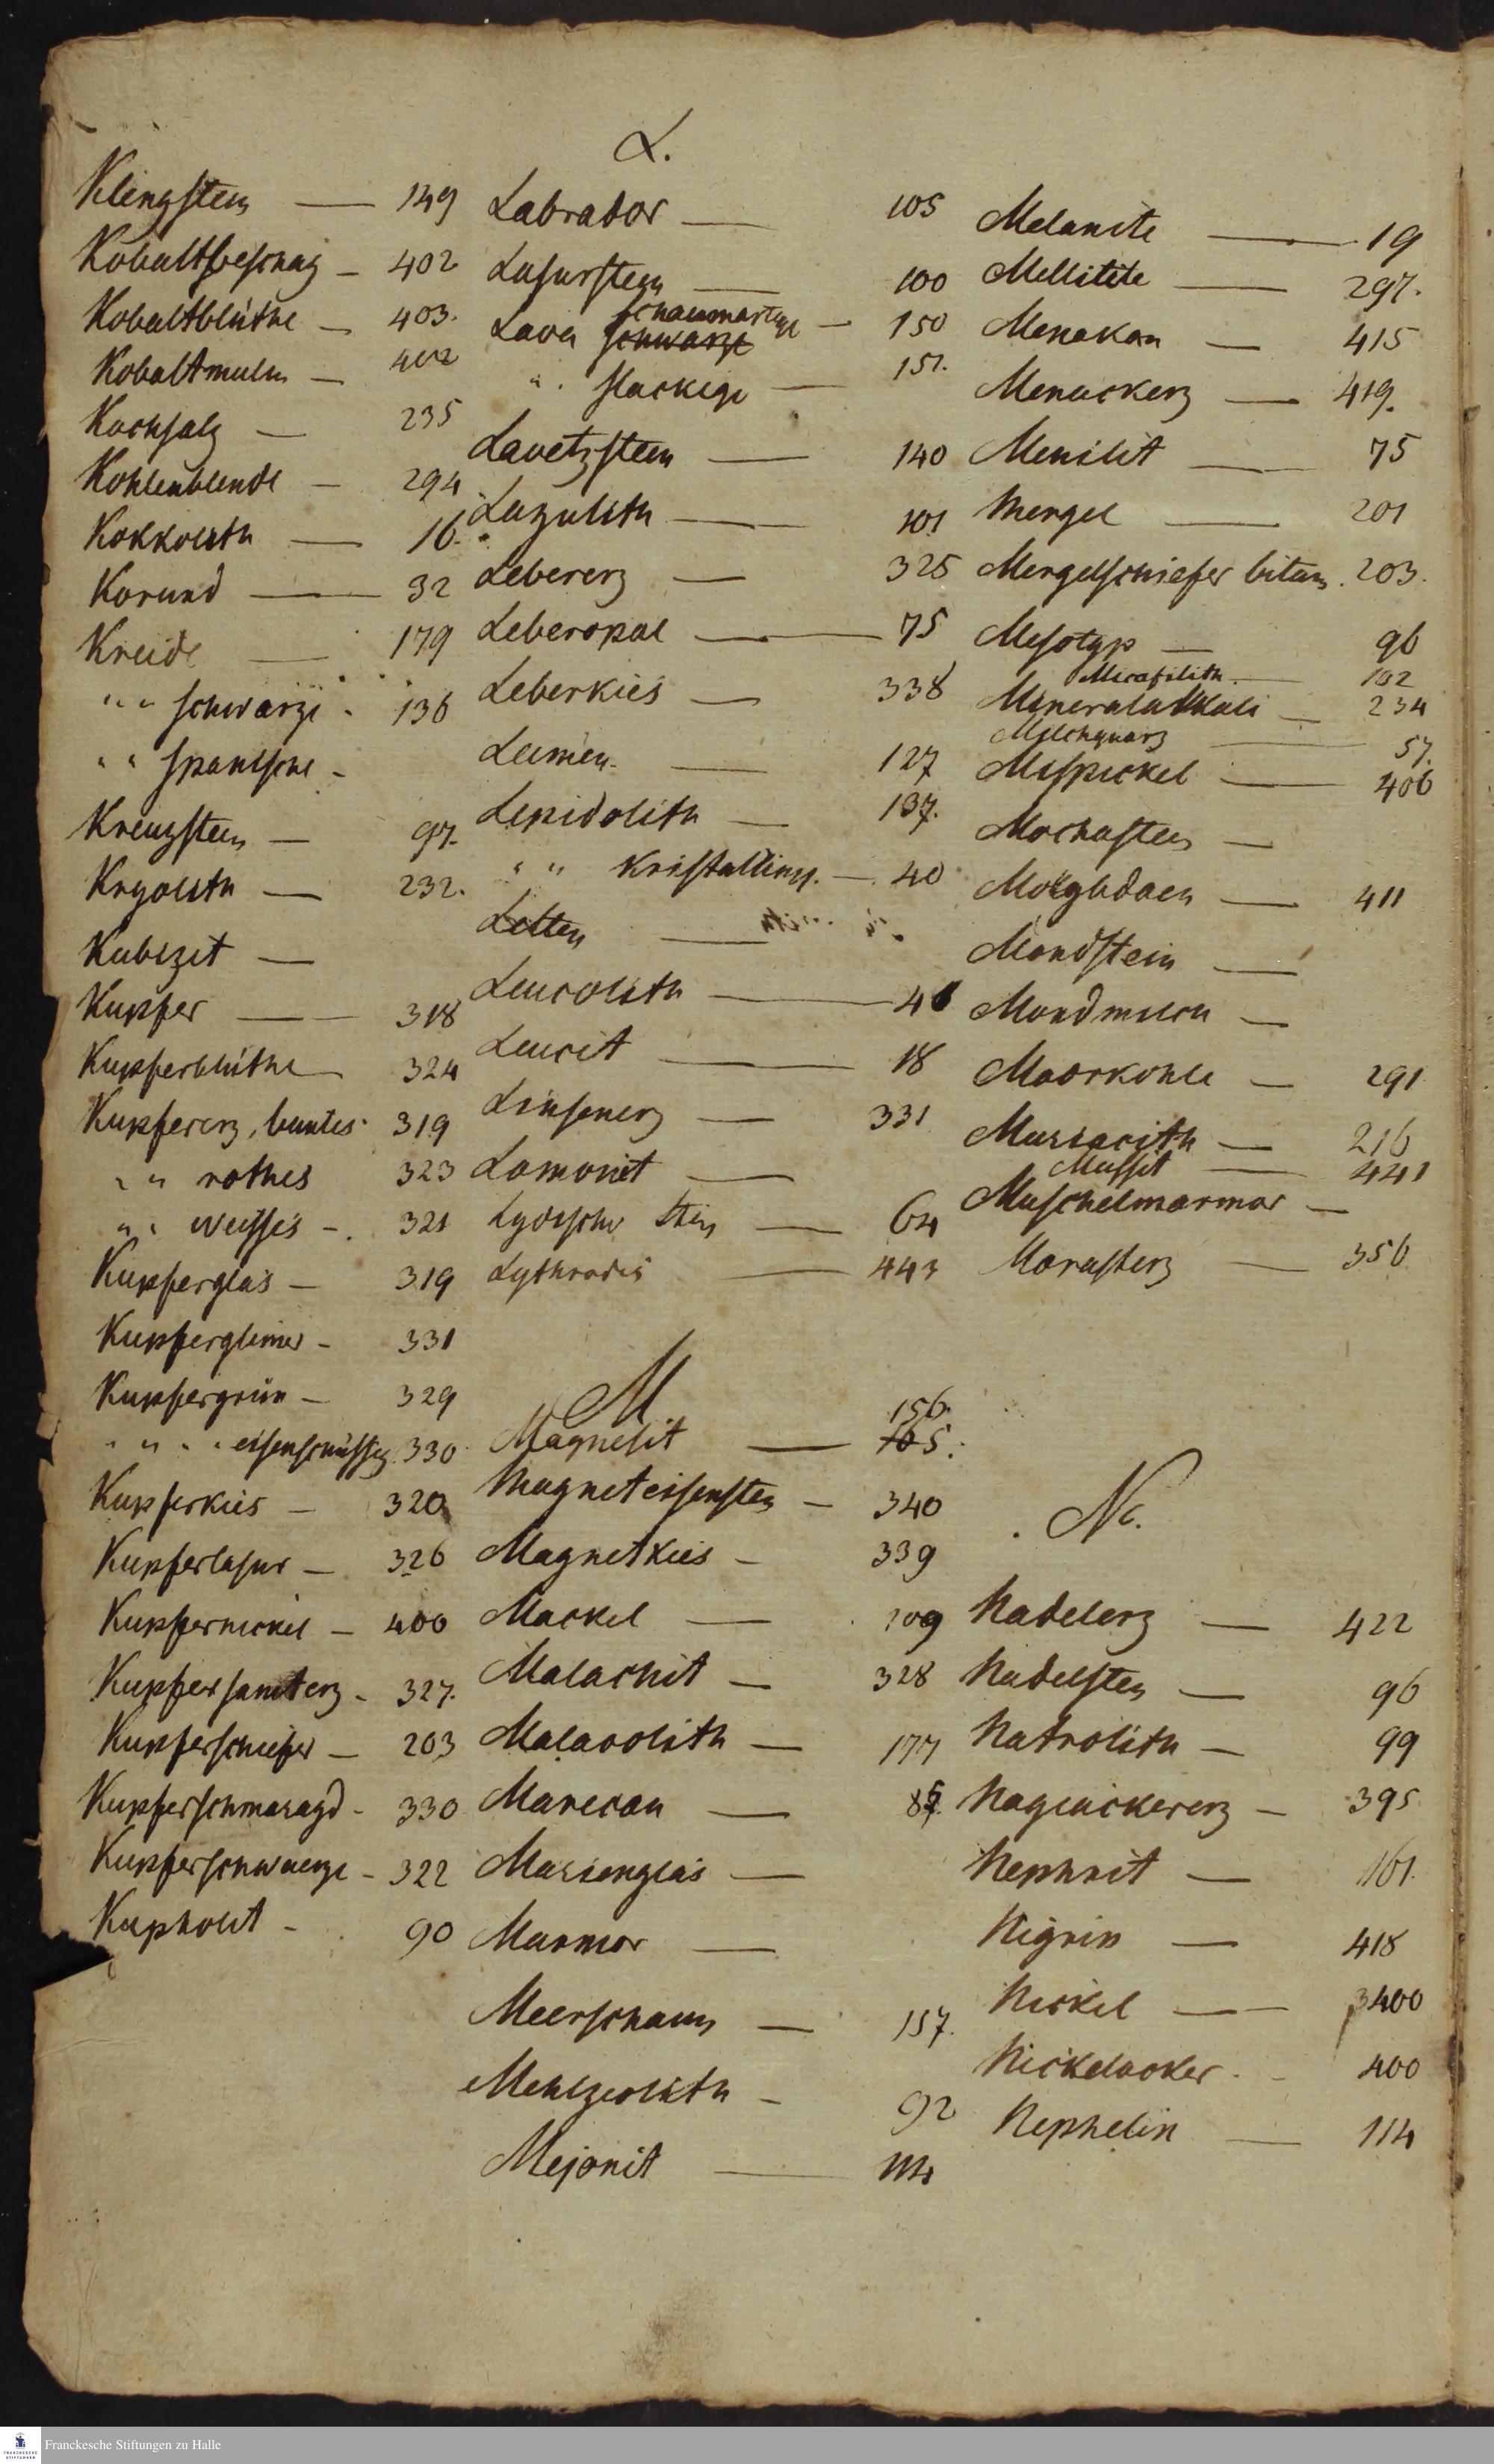 Klingstein — 149
Kobaltbeschlag — 402
Kobaltblüthe — 403.
Kobaltmulm — 402
Kochsalz — 235
Kohlenblende — 294
Kokkolith — 16.
Korund — 32
Kreide — 179
" " schwarze - 136
" " spanische -
Kreuzstein — 97.
Kryolith — 232.
Kubizit —
Kupfer — 318
Kupferblüthe — 324
Kupfererz, buntes 319
" " rothes 323
" " weisses - 321
Kupferglas — 319
Kupferglimer - 331
Kupfergrün — 329
" " " eisenschüssig 330
Kupferkies — 320
Kupferlasur — 326
Kupfernickel — 400
Kupfersamterz - 327.
Kupferschiefer — 203
Kupferschmaragd - 330
Kupferschwaerze - 322
Kupholit - 90
L.
Labrador — 105
Lasurstein — 100
schaumartige
Lava schwarze — 150
" . slackige — 151.
Lavetzstein — 140
Lazulith — 101
Lebererz — 325
Leberopal — 75
Leberkies — 338
Leimen — 127
Lepidolith — 137.
" " kristallinis. — 40
Letten —
Leucolith — 46
Leucit — 18
Linsenerz — 331
Lomonit —
Lydischr Stein — 64
Lythrodes — 443
M
156.
Magnesit — 165.
Magneteisenstein — 340
Magnetkies — 339
Mackel — 109
Malachit — 328
Malacolith — 177
Marecan — 85.
Marienglas —
Marmor —
Meerschaum — 157.
Mehlzeolith — 92
Mejonit — 114
Melanite — 19
Mellitite — 297.
Menakan — 415
Menackerz — 419.
Menilit — 75
Mergel — 201
Mergelschiefer bitum. 203.
Mesotyp — 96
102
Mineralalkali — 234
Milchquarz — 57.
Mispickel — 406
Mochastein —
Molybdaen — 411
Mondstein —
Mondmilch —
Moorkohle — 291
Muriacith — 216
Mussit — 441
Muschelmarmor —
Morasterz — 356
N.
Nadelerz — 422
Nadelstein — 96
Natrolith — 99
Nagiackererz — 395
Nephrit — 161.
Nigrin — 418
Nickel — 3400
Nickelocker - 400
Nephelin — 114
Franckesche Stiftungen zu Halle
FRANCKESCHE
STIFTUNGEN